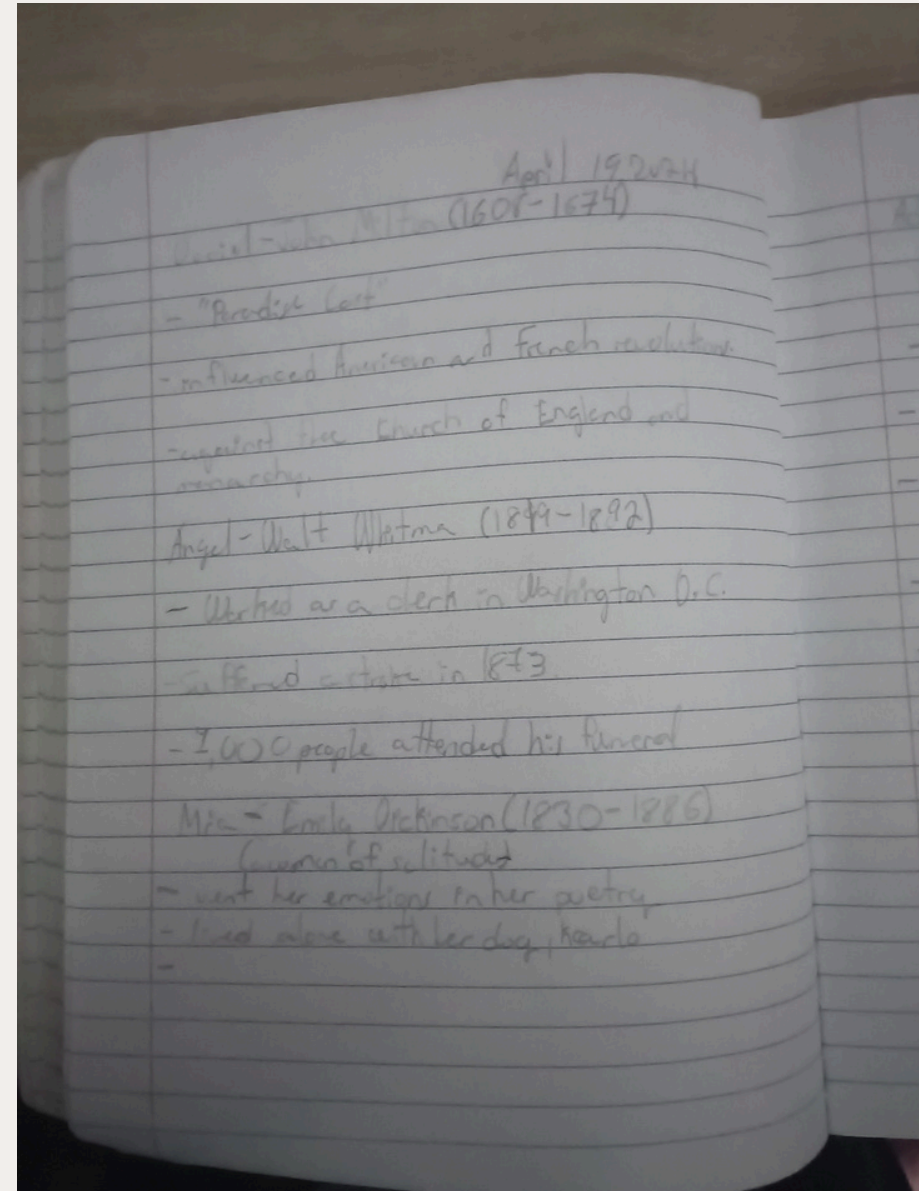 April 19 2024
Daniel - John Milton (1608-1674)
- "Paradise Lost"
- influenced American and French revolution.
- against the Church of England and
monarchy.
Angel - Walt Whitma (1819-1892)
- Worked as a clerk in Washington D.C.
- suffered a stroke in 1873
- 1,000 people attended his funeral
Mia - Emily Dickinson (1830-1886)
(women of solitude)
- went her emotions in her poetry
- lived alone with her dog,
-